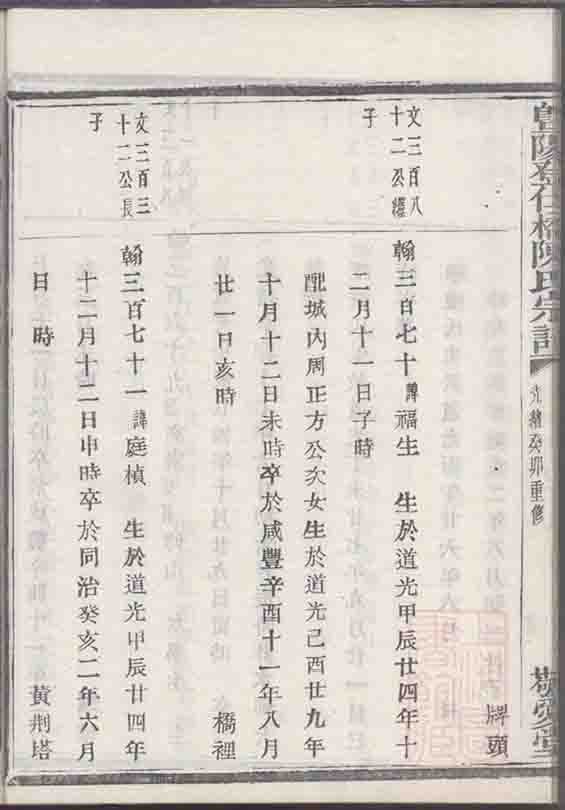 暨陽登仕橋陳氏宗譜
光緒癸卯重修
敬愛堂
牌頭
文三百八
十二公繼
子
翰三百七十諱福生 生於道光甲辰廿四年十
二月十一日子時
配城內周正方公次女生於道光己酉廿九年
十月十二日未時卒於咸豐辛酉十一年八月
廿一日亥時
橋裡
文三百三
十二公長
子
翰三百七十一諱庭楨 生於道光甲辰廿四年
十二月十二日申時卒於同治癸亥二年六月
日 時
黃荆塔